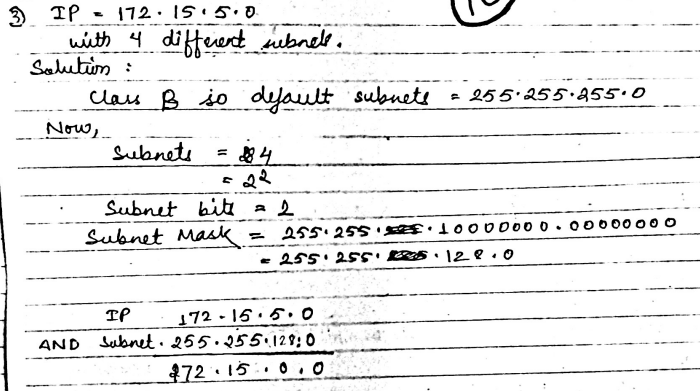 3) IP = 172.15.5.0
with 4 different subnets.
Solution :
Class B so default subnets = 255.255.255.0
Now,
Subnets = 4
= 2²
Subnet bits = 2
Subnet Mask = 255.255.10000000.00000000
= 255.255.128.0
IP 172.15.5.0
AND Subnet. 255.255.128.0
172.15.0.0